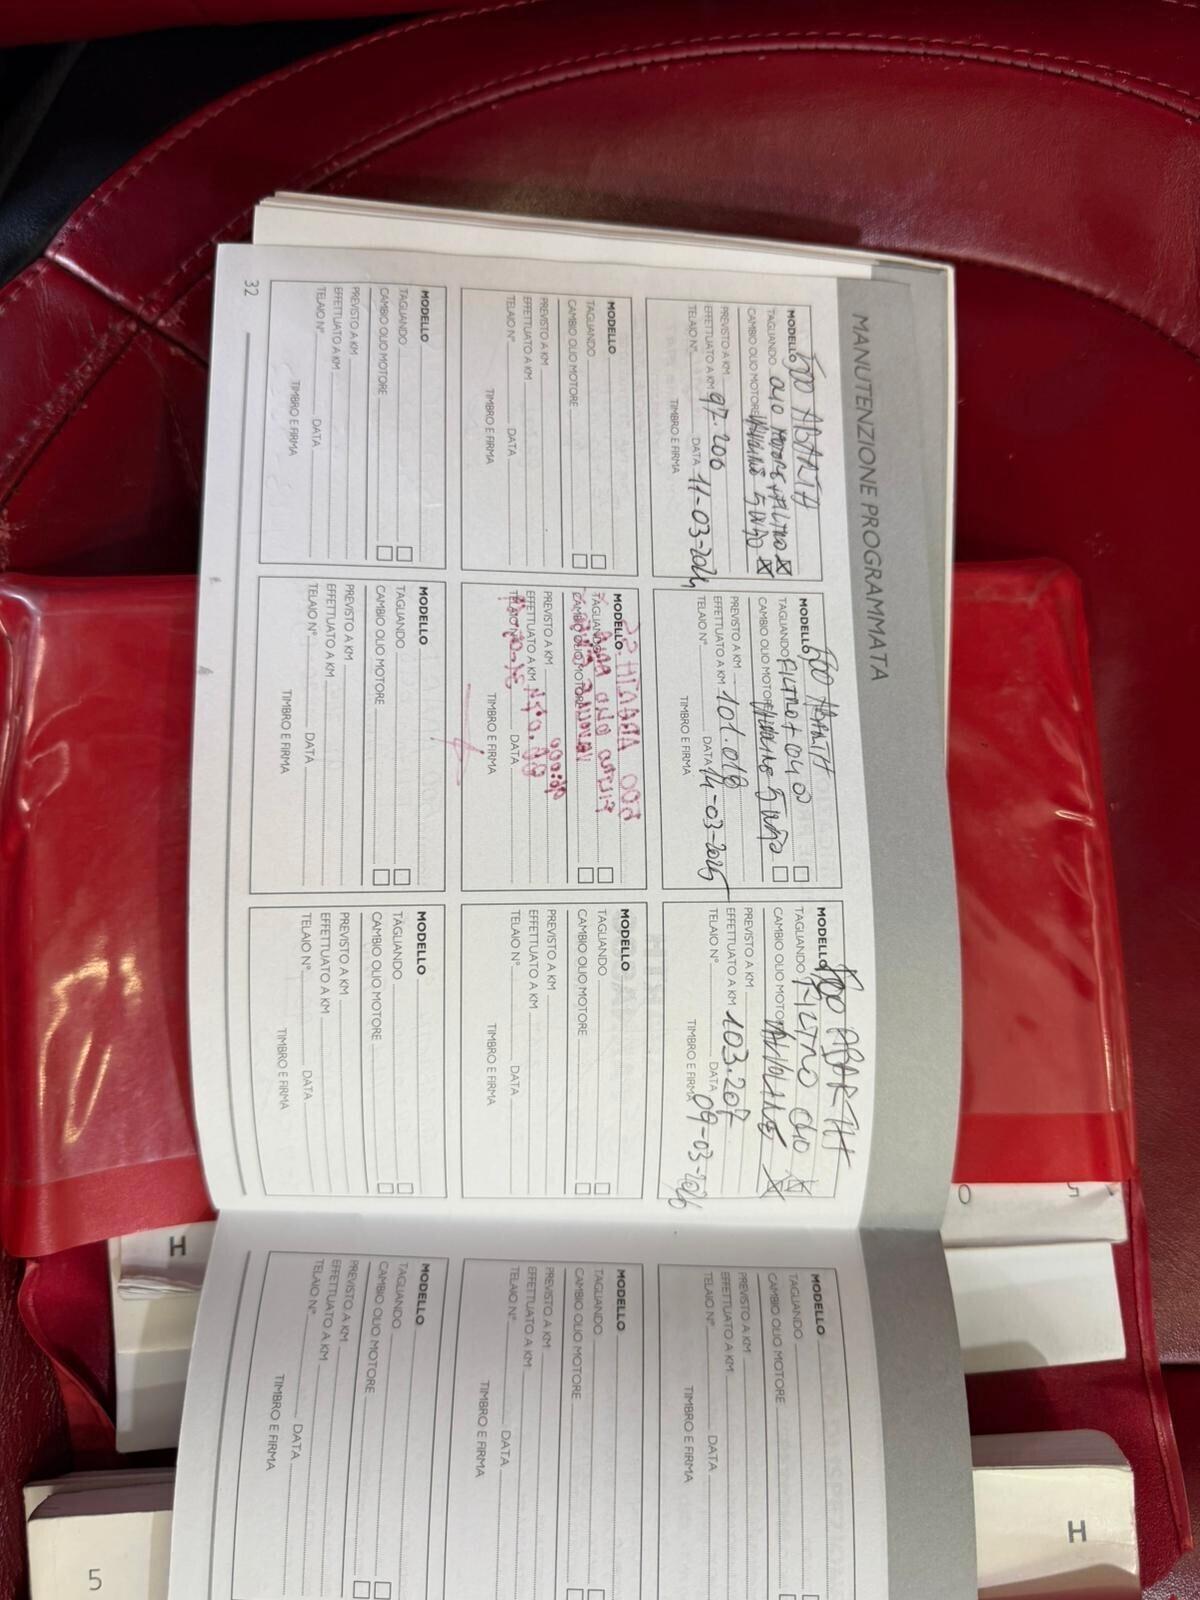 MANUTENZIONE PROGRAMMATA
MODELLO 500 ABARTH
TAGLIANDO OLIO MOTORE + FILTRO
CAMBIO OLIO MOTORE
PREVISTO A KM
EFFETTUATO A KM 97.200
TELAIO N° DATA 11-03-2024
TIMBRO E FIRMA
MODELLO 500 ABARTH
TAGLIANDO FILTRO + OLIO
CAMBIO OLIO MOTORE
PREVISTO A KM
EFFETTUATO A KM 101.018
TELAIO N° DATA 14-03-2025
TIMBRO E FIRMA
MODELLO 500 ABARTH
TAGLIANDO FILTRO OLIO
CAMBIO OLIO MOTORE
PREVISTO A KM
EFFETTUATO A KM 103.207
TELAIO N° DATA 09-03-2026
TIMBRO E FIRMA
MODELLO
TAGLIANDO
CAMBIO OLIO MOTORE
PREVISTO A KM
EFFETTUATO A KM
TELAIO N° DATA
TIMBRO E FIRMA
MODELLO
TAGLIANDO
CAMBIO OLIO MOTORE
PREVISTO A KM
EFFETTUATO A KM
TELAIO N° DATA
TIMBRO E FIRMA
MODELLO
TAGLIANDO
CAMBIO OLIO MOTORE
PREVISTO A KM
EFFETTUATO A KM
TELAIO N° DATA
TIMBRO E FIRMA
MODELLO
TAGLIANDO
CAMBIO OLIO MOTORE
PREVISTO A KM
EFFETTUATO A KM
TELAIO N° DATA
TIMBRO E FIRMA
MODELLO
TAGLIANDO
CAMBIO OLIO MOTORE
PREVISTO A KM
EFFETTUATO A KM
TELAIO N° DATA
TIMBRO E FIRMA
MODELLO
TAGLIANDO
CAMBIO OLIO MOTORE
PREVISTO A KM
EFFETTUATO A KM
TELAIO N° DATA
TIMBRO E FIRMA
32
MODELLO
TAGLIANDO
CAMBIO OLIO MOTORE
PREVISTO A KM
EFFETTUATO A KM
TELAIO N° DATA
TIMBRO E FIRMA
MODELLO
TAGLIANDO
CAMBIO OLIO MOTORE
PREVISTO A KM
EFFETTUATO A KM
TELAIO N° DATA
TIMBRO E FIRMA
MODELLO
TAGLIANDO
CAMBIO OLIO MOTORE
PREVISTO A KM
EFFETTUATO A KM
TELAIO N° DATA
TIMBRO E FIRMA
H
H
5